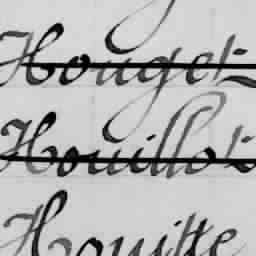 Houget
Houillot
Houitte